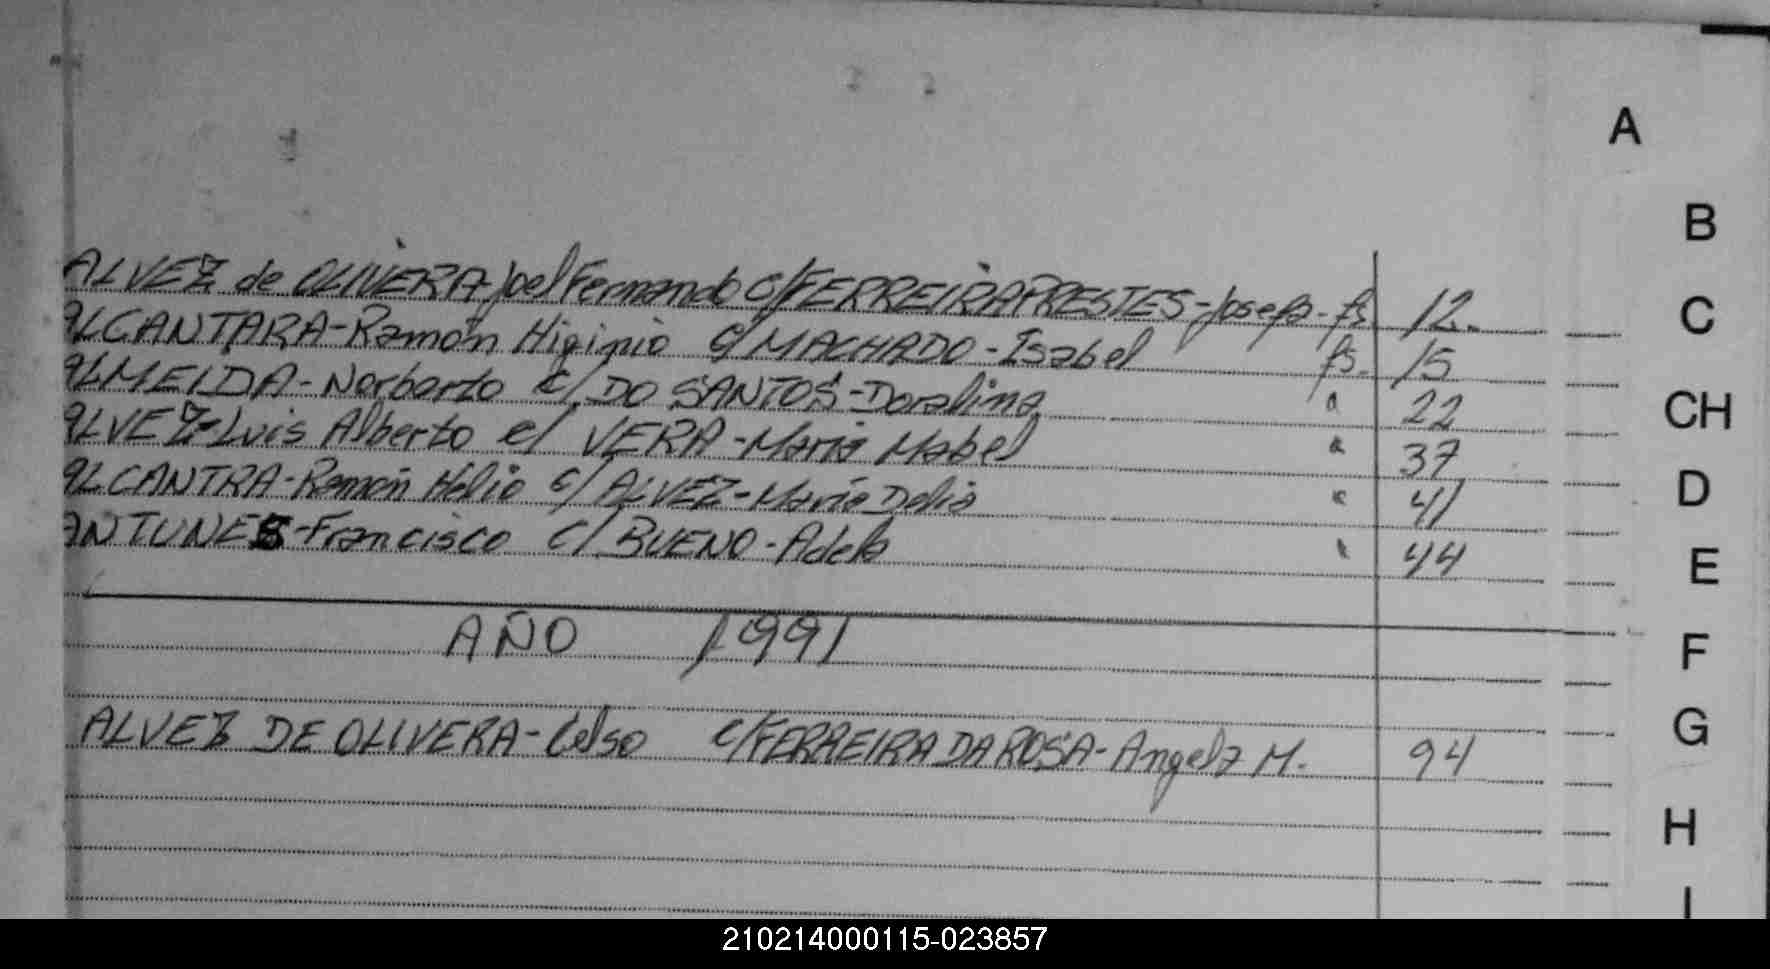 ALVEZ de OLIVERA Joel Fernando c/ FERREIRA PRESTES - Josefa - fs. 12.
ALCANTARA - Ramón Higinio c/ MACHADO - Isabel fs. 15
ALMEIDA - Norberto c/ DO SANTOS - Doralina " 22
ALVEZ - Luis Alberto c/ VERA - Maria Mabel " 37
ALCANTRA - Ramón Helio c/ ALVEZ - María Delia " 41
ANTUNES - Francisco c/ BUENO - Adela " 44
AÑO 1991
ALVEZ DE OLIVERA - Celso c/ FERREIRA DA ROSA - Angela M. 94
A
B
C
CH
D
E
F
G
H
I
210214000115-023857